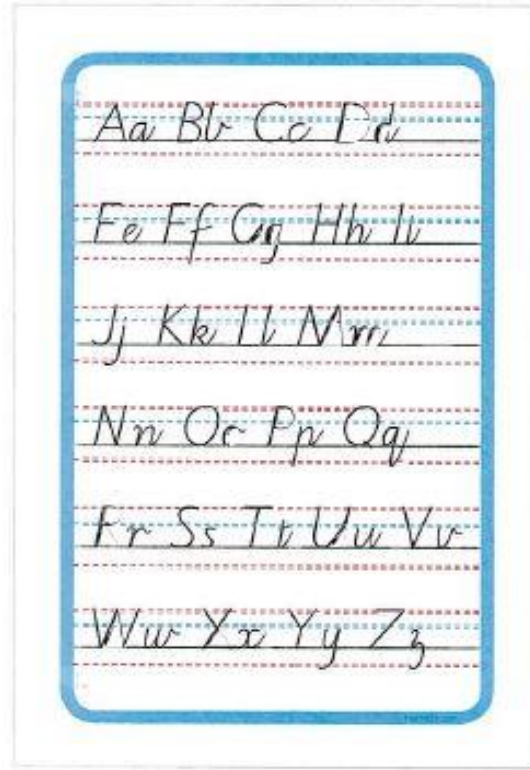 Aa Bb Cc Dd
Fe Ff Gg Hh Ii
Jj Kk Ll Mm
Nn Oo Pp Qq
Fr Ss Tt Uu Vv
Ww Yx Yy Zz